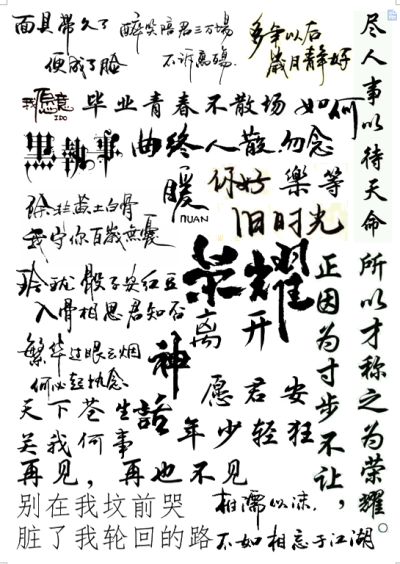 面具带久了
便成了脸
醉笑陪君三万場
不诉离殇
多年以后
歲月静好
尽人事以待天命
我愿意
IDO
毕业青春不散场
如何
黑執事
曲终人散勿念
暖
NUAN
你好
樂等
旧时光
徐扯黄土白骨
我守你百歲無憂
玲珑骰子安红豆
入骨相思君知否
荣耀
离开
正因为寸步不让，
所以才称之为荣耀。
繁华过眼云烟
何必轻执念
神話
天下苍生
关我何事
愿君安
年少轻狂
再见，再也不见
别在我坟前哭
脏了我轮回的路
相濡以沫，
不如相忘于江湖